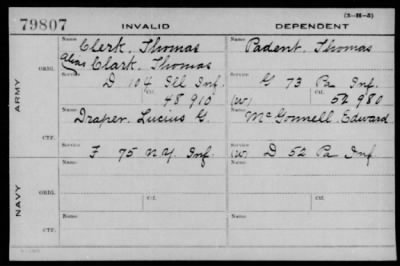 79807 INVALID DEPENDENT (3-M-5)
ARMY
NAVY
ORIG.
CTF.
ORIG.
CTF.
Name: Clerk, Thomas
alias Clark, Thomas
Service: D 104 Ill Inf.
Ctf. 48 910
Name: Draper, Lucius G.
Service: F 75 N.Y. Inf.
Name:
Ctf.
Name:
Name: Padent, Thomas
Service: G 73 Pa Inf.
(W) Ctf. 52 980
Name: McGonnell, Edward
Service: (W) D 52 Pa Inf
Name:
Ctf.
Name: